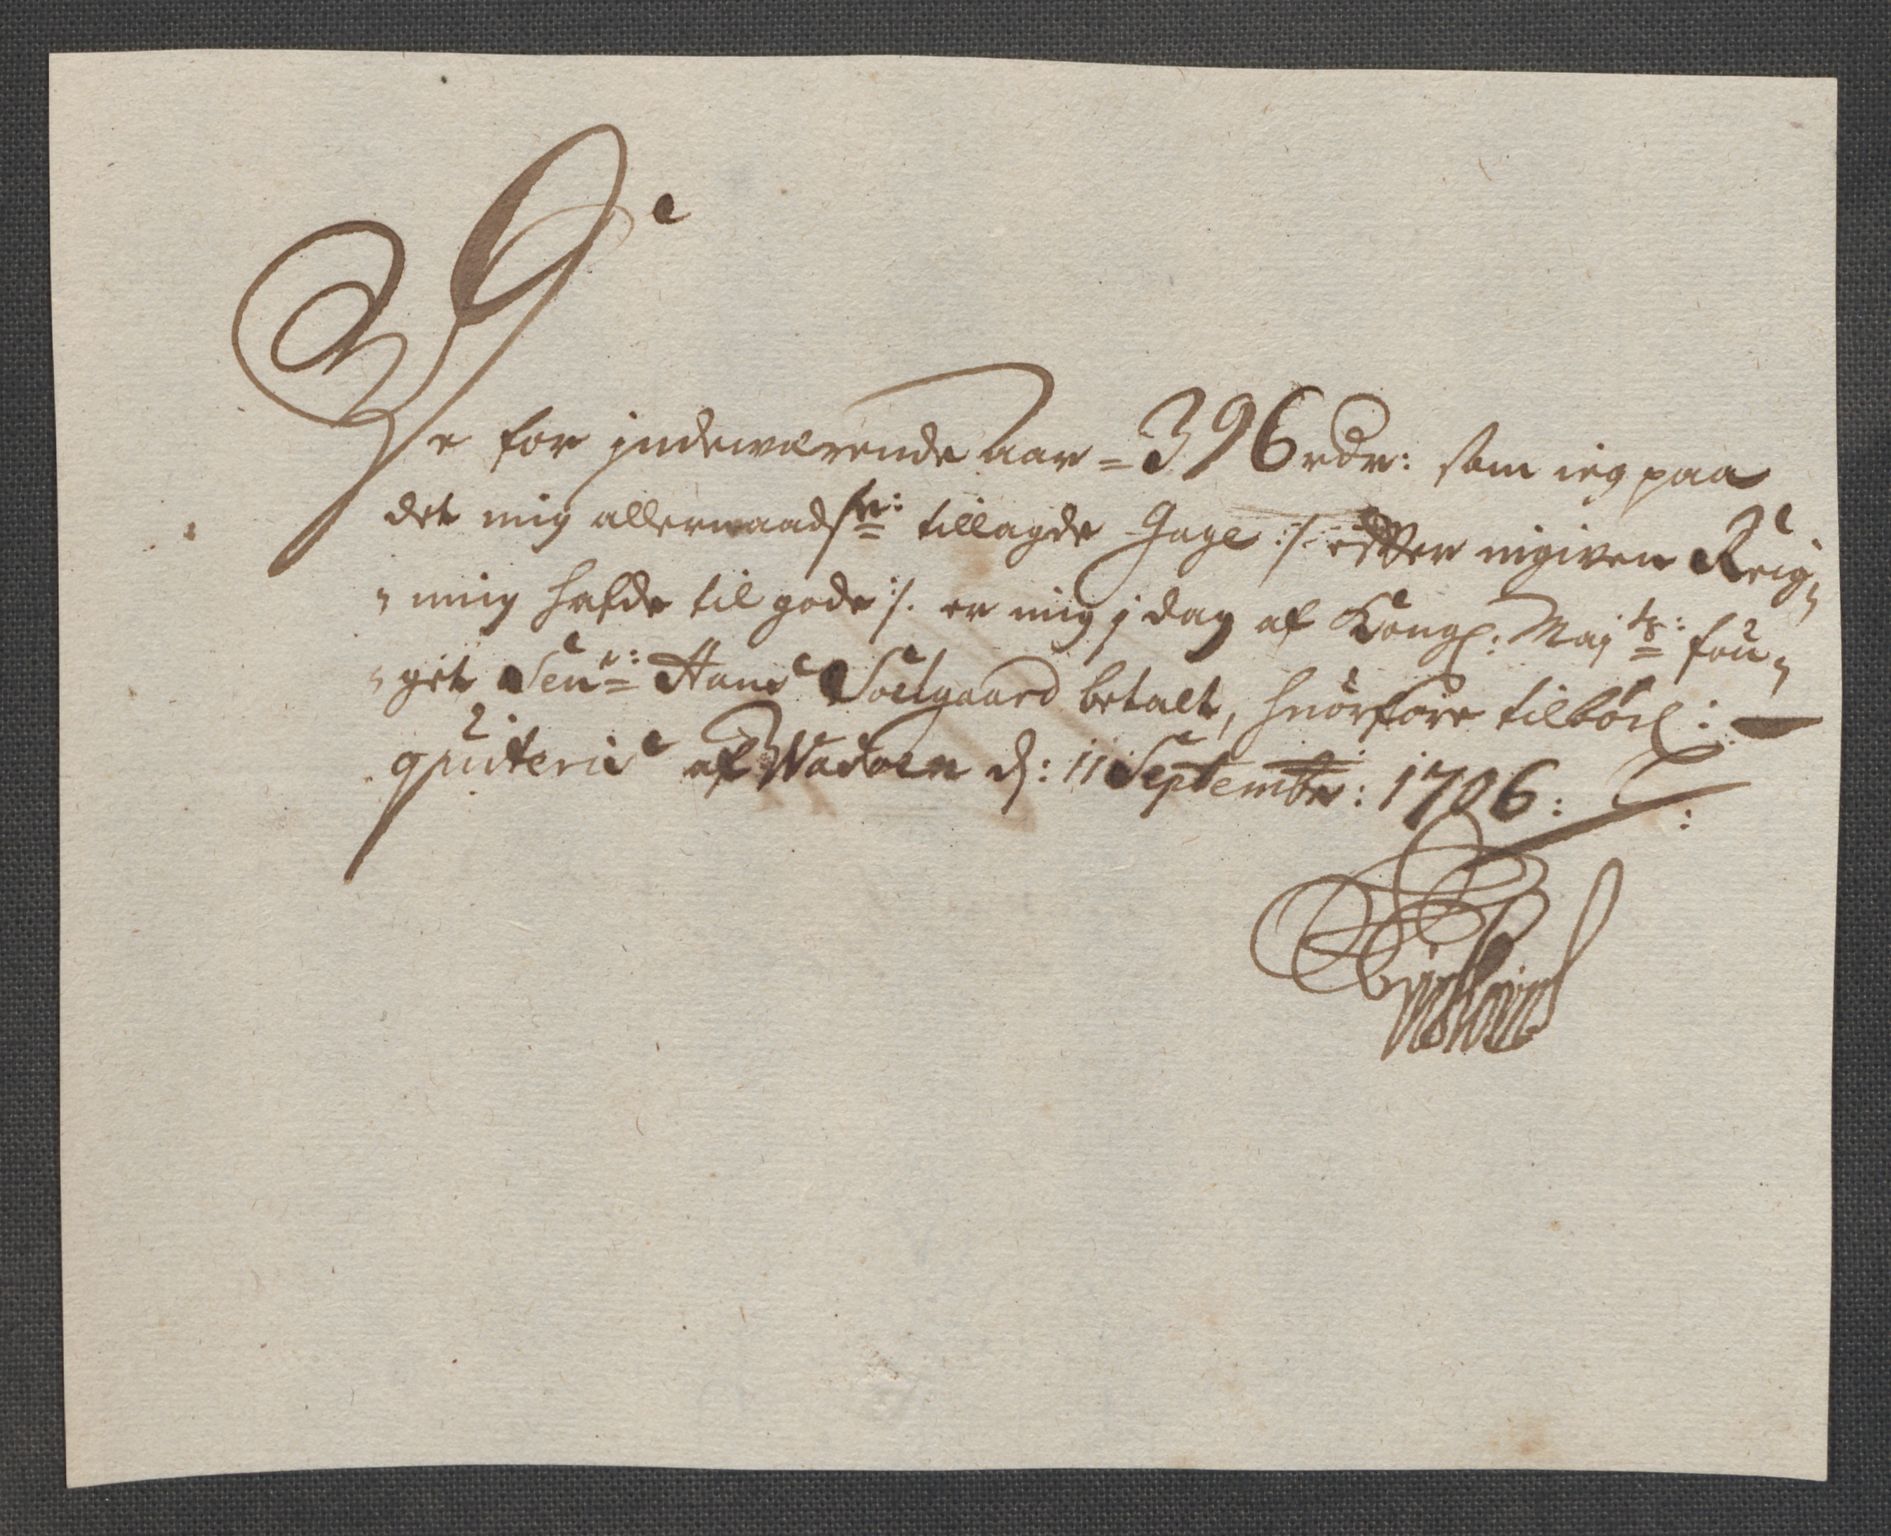 De for jndewærende Aar = 396 rdr: som ieg paa
det mig allernaadste: tillagde Gage :/: efter ingiven Reig„
„ning hafde til gode :/. er mig j dag af Kongl: Majts: fou„
„get Seur: Hans Soelgaard betalt, huorfore tilbörl:
qviteris af d: 11 Septembr: 1706: